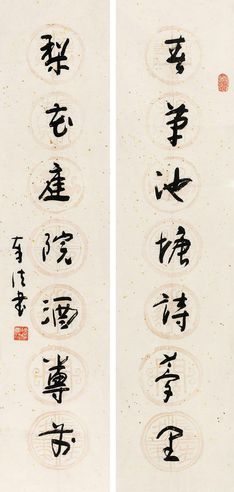 春草池塘詩夢里
梨花庭院酒尊前